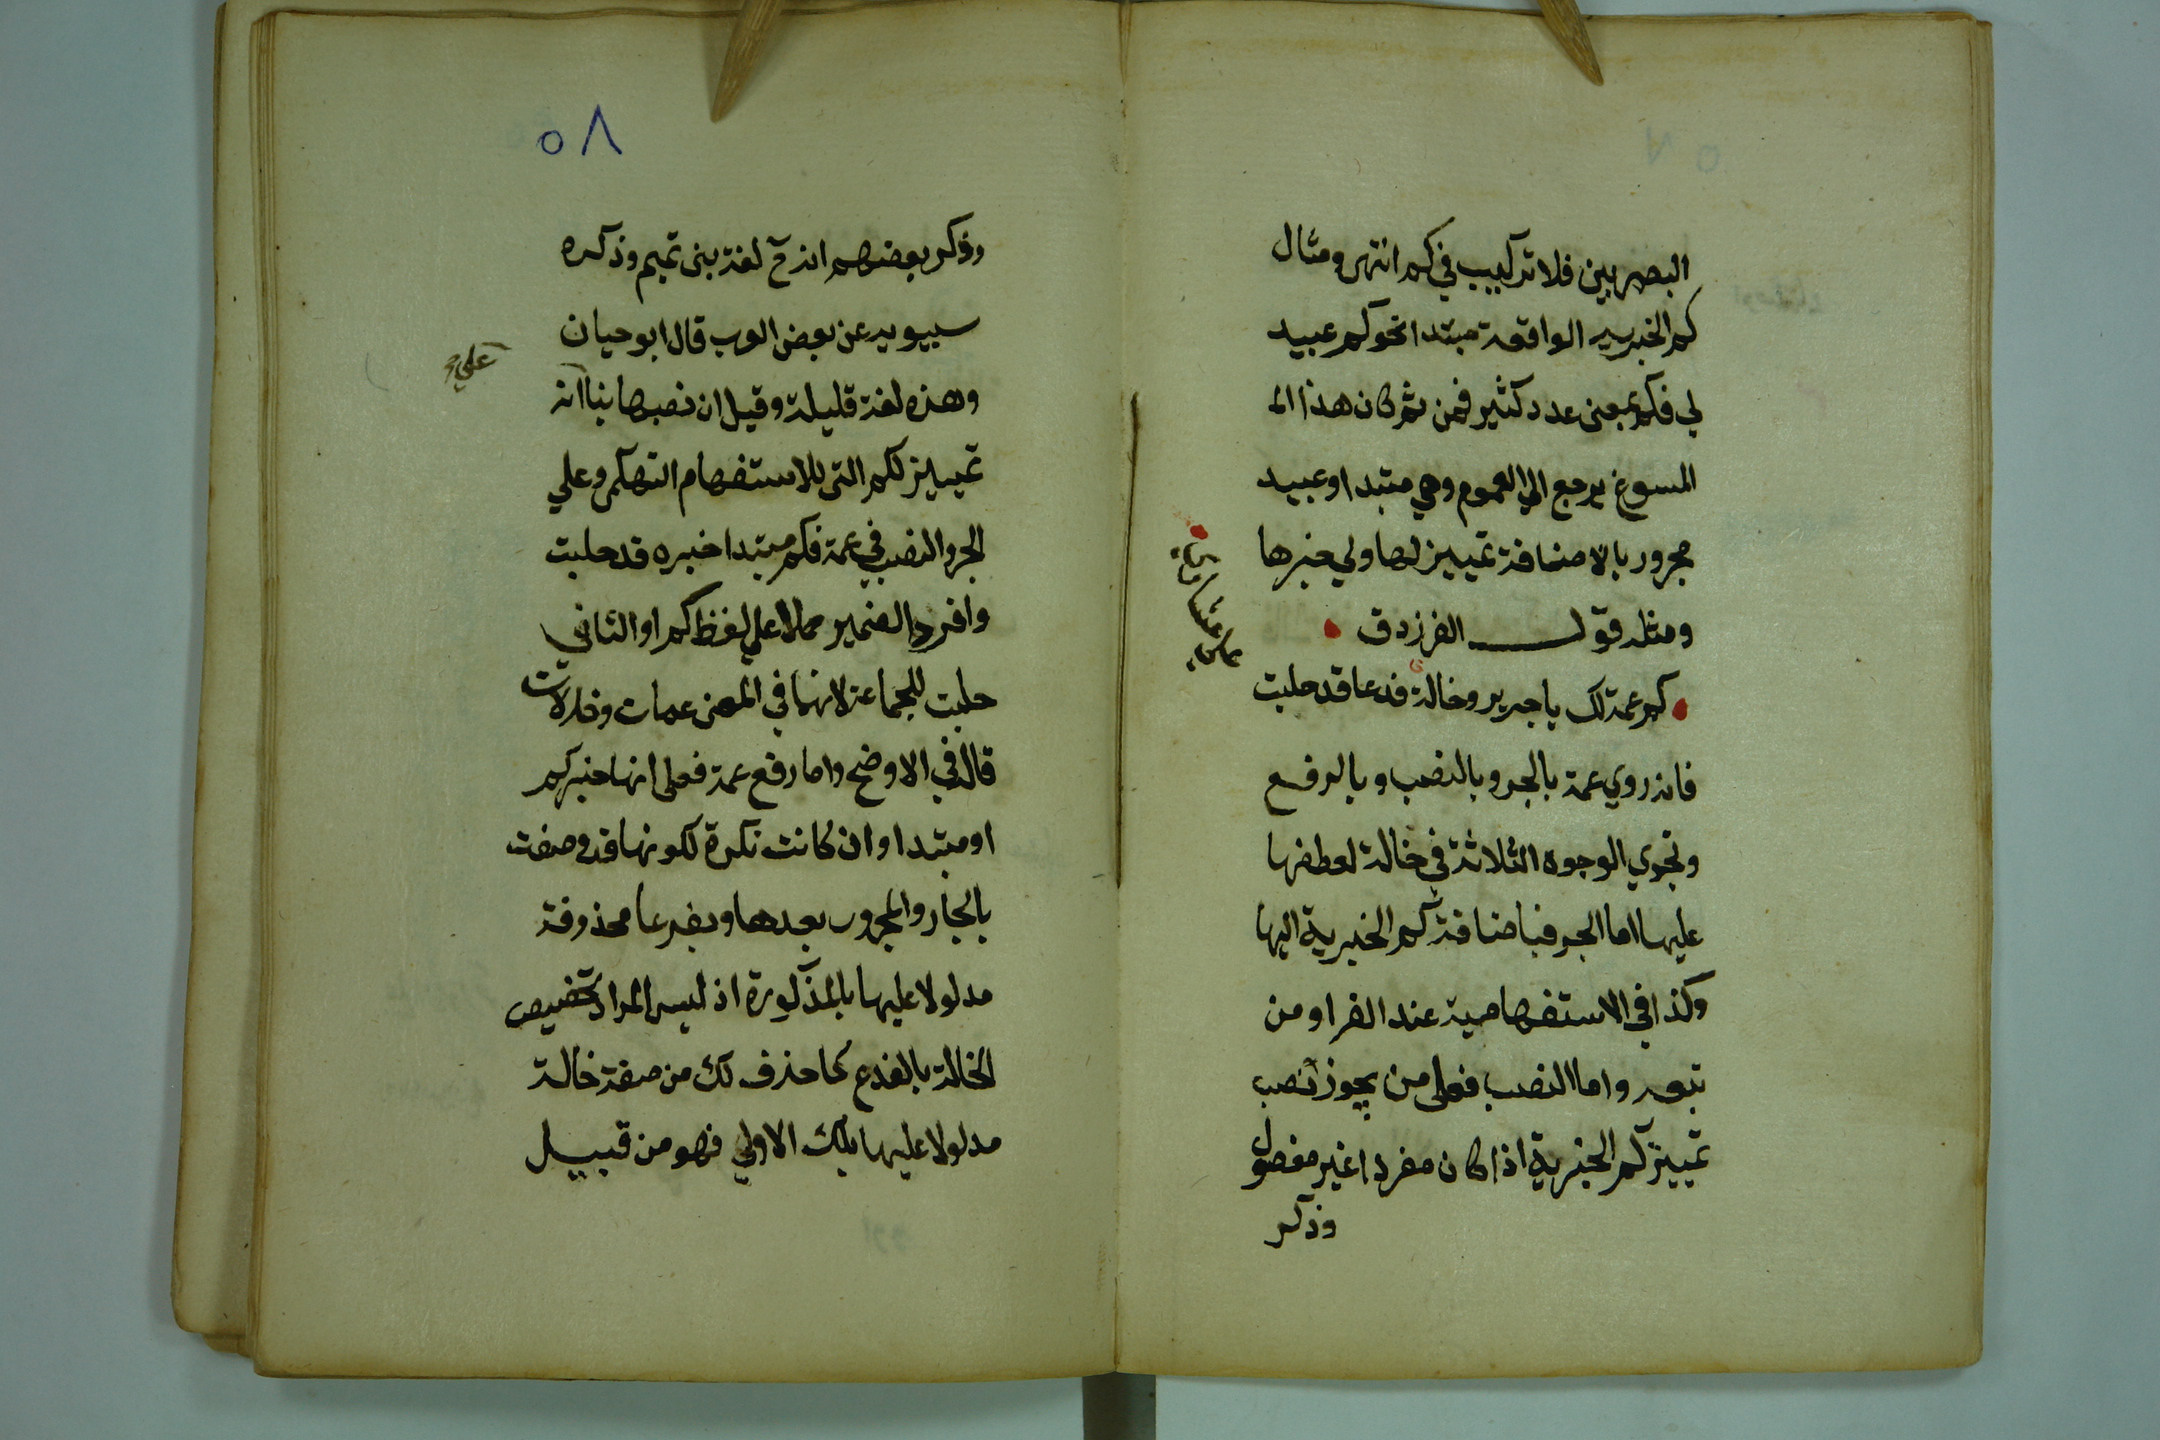 البصريين فلا تركيب في كم انتهى ومثال
كم الخبرية الواقعة مبتدا نحو كم عبيد
لي فكم بمعنى عدد كثير فمن ثم كان هذا الم
المسوغ يرجع الي العموم وهي مبتدا وعبيد
مجرور بالاضافة تمييز لها ولي خبرها
ومثله قول الفرزدق
كم عمة لك يا جرير وخالة فدعا قد حلبت
علي عشاري
فانه روي عمة بالجر وبالنصب وبالرفع
وتجوي الوجوه الثلاثة في خالة لعطفها
عليها اما الجر فباضافة كم الخبرية اليها
وكذا في الاستفهامية عند الفرا ومن
تبعه واما النصب فعلى من يجوز نصب
تمييز كم الخبرية اذا كان مفردا غير مفصول
وذكر
٥٨
وذكر بعضهم انه في لغة بني تميم وذكره
سيبويه عن بعض العرب قال ابو حيان
وهذه لغة قليلة وقيل ان نصبها بنا انه
علي
تمييز لكم التي للاستفهام التهكم وعلي
الجر والنصب في عمة فكم مبتدا خبره قد حلبت
وافرد الضمير حملا علي لفظ كم او الثاني
حلبت للجماعة لانها في المعنى عمات وخالات
قال في الاوضح واما رفع عمة فعلى انها خبر كم
او مبتدا وان كانت نكرة لكونها قد وصفت
بالجار والمجرور بعدها وبفدعا محذوفة
مدلولا عليها بالمذكورة اذ ليس المراد تخصيص
الخالة بالفدع كما حذف لك من صفة خالة
مدلولا عليها بلك الاولي فهو من قبيل